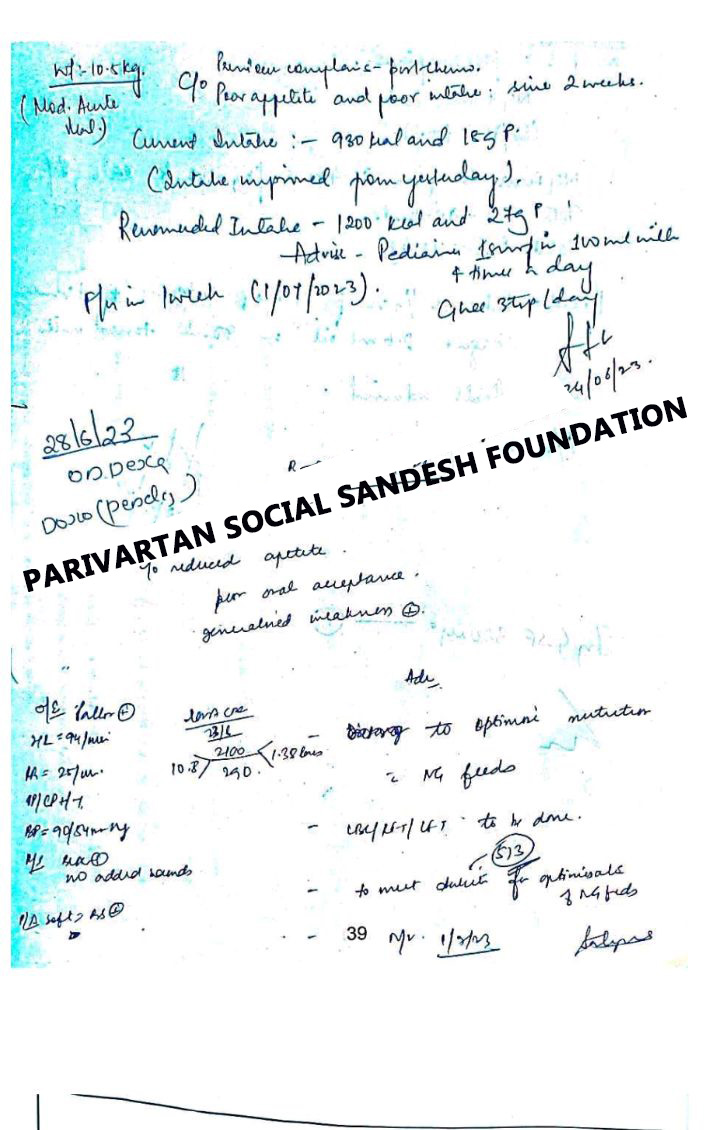 Wt:- 10.5kg.
(Mod. Acute Mal.)
C/o Previous complais - post-chemo.
Poor appetite and poor intake: sine 2 weeks.
Current Intake :- 930 kcal and 18g P.
(Intake improved from yesterday).
Recommended Intake - 1200 kcal and 27g P
Advise - Pediasure in 100ml milk
4 times a day
Ghee 3tsp/day
F/u in 1 week (1/07/2023).
24/06/23.
28/6/23
ON DEXA
R
PARIVARTAN SOCIAL SANDESH FOUNDATION
c/o reduced apetite.
poor oral acceptance.
generalised weakness ⊕.
Adv
O/E Pallor ⊕
HR = 94/min
RR = 25/m.
PP/CP+/+
BP = 90/54mmHg
no added sounds
P/A soft, BS ⊕
23/6
10.8 2100 290. 1.38 lacs
- to optimise nutrition
c NG feeds
- CBC/RFT/LFT to be done.
- to meet dietit (513) for optimisats
of NG feeds
- 39 N/v.